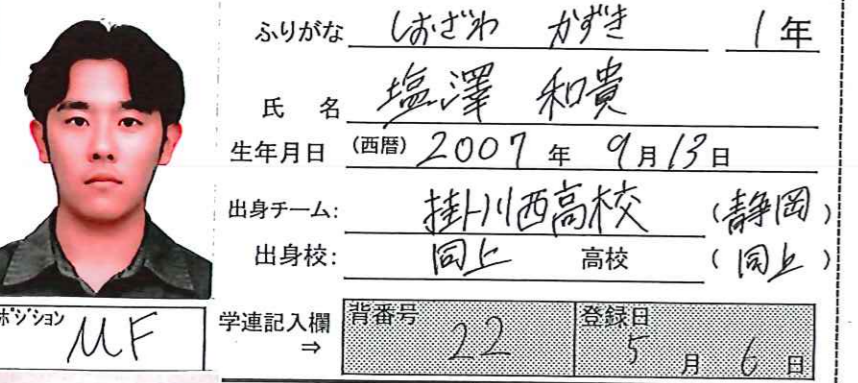 ふりがな しおざわ かずき 1年
氏 名 塩澤 和貴
生年月日 (西暦) 2007 年 9月13日
出身チーム: 掛川西高校 (静岡)
出身校: 同上 高校 (同上)
ポジション MF
学連記入欄 ⇒ 背番号 22 登録日 5月 6日